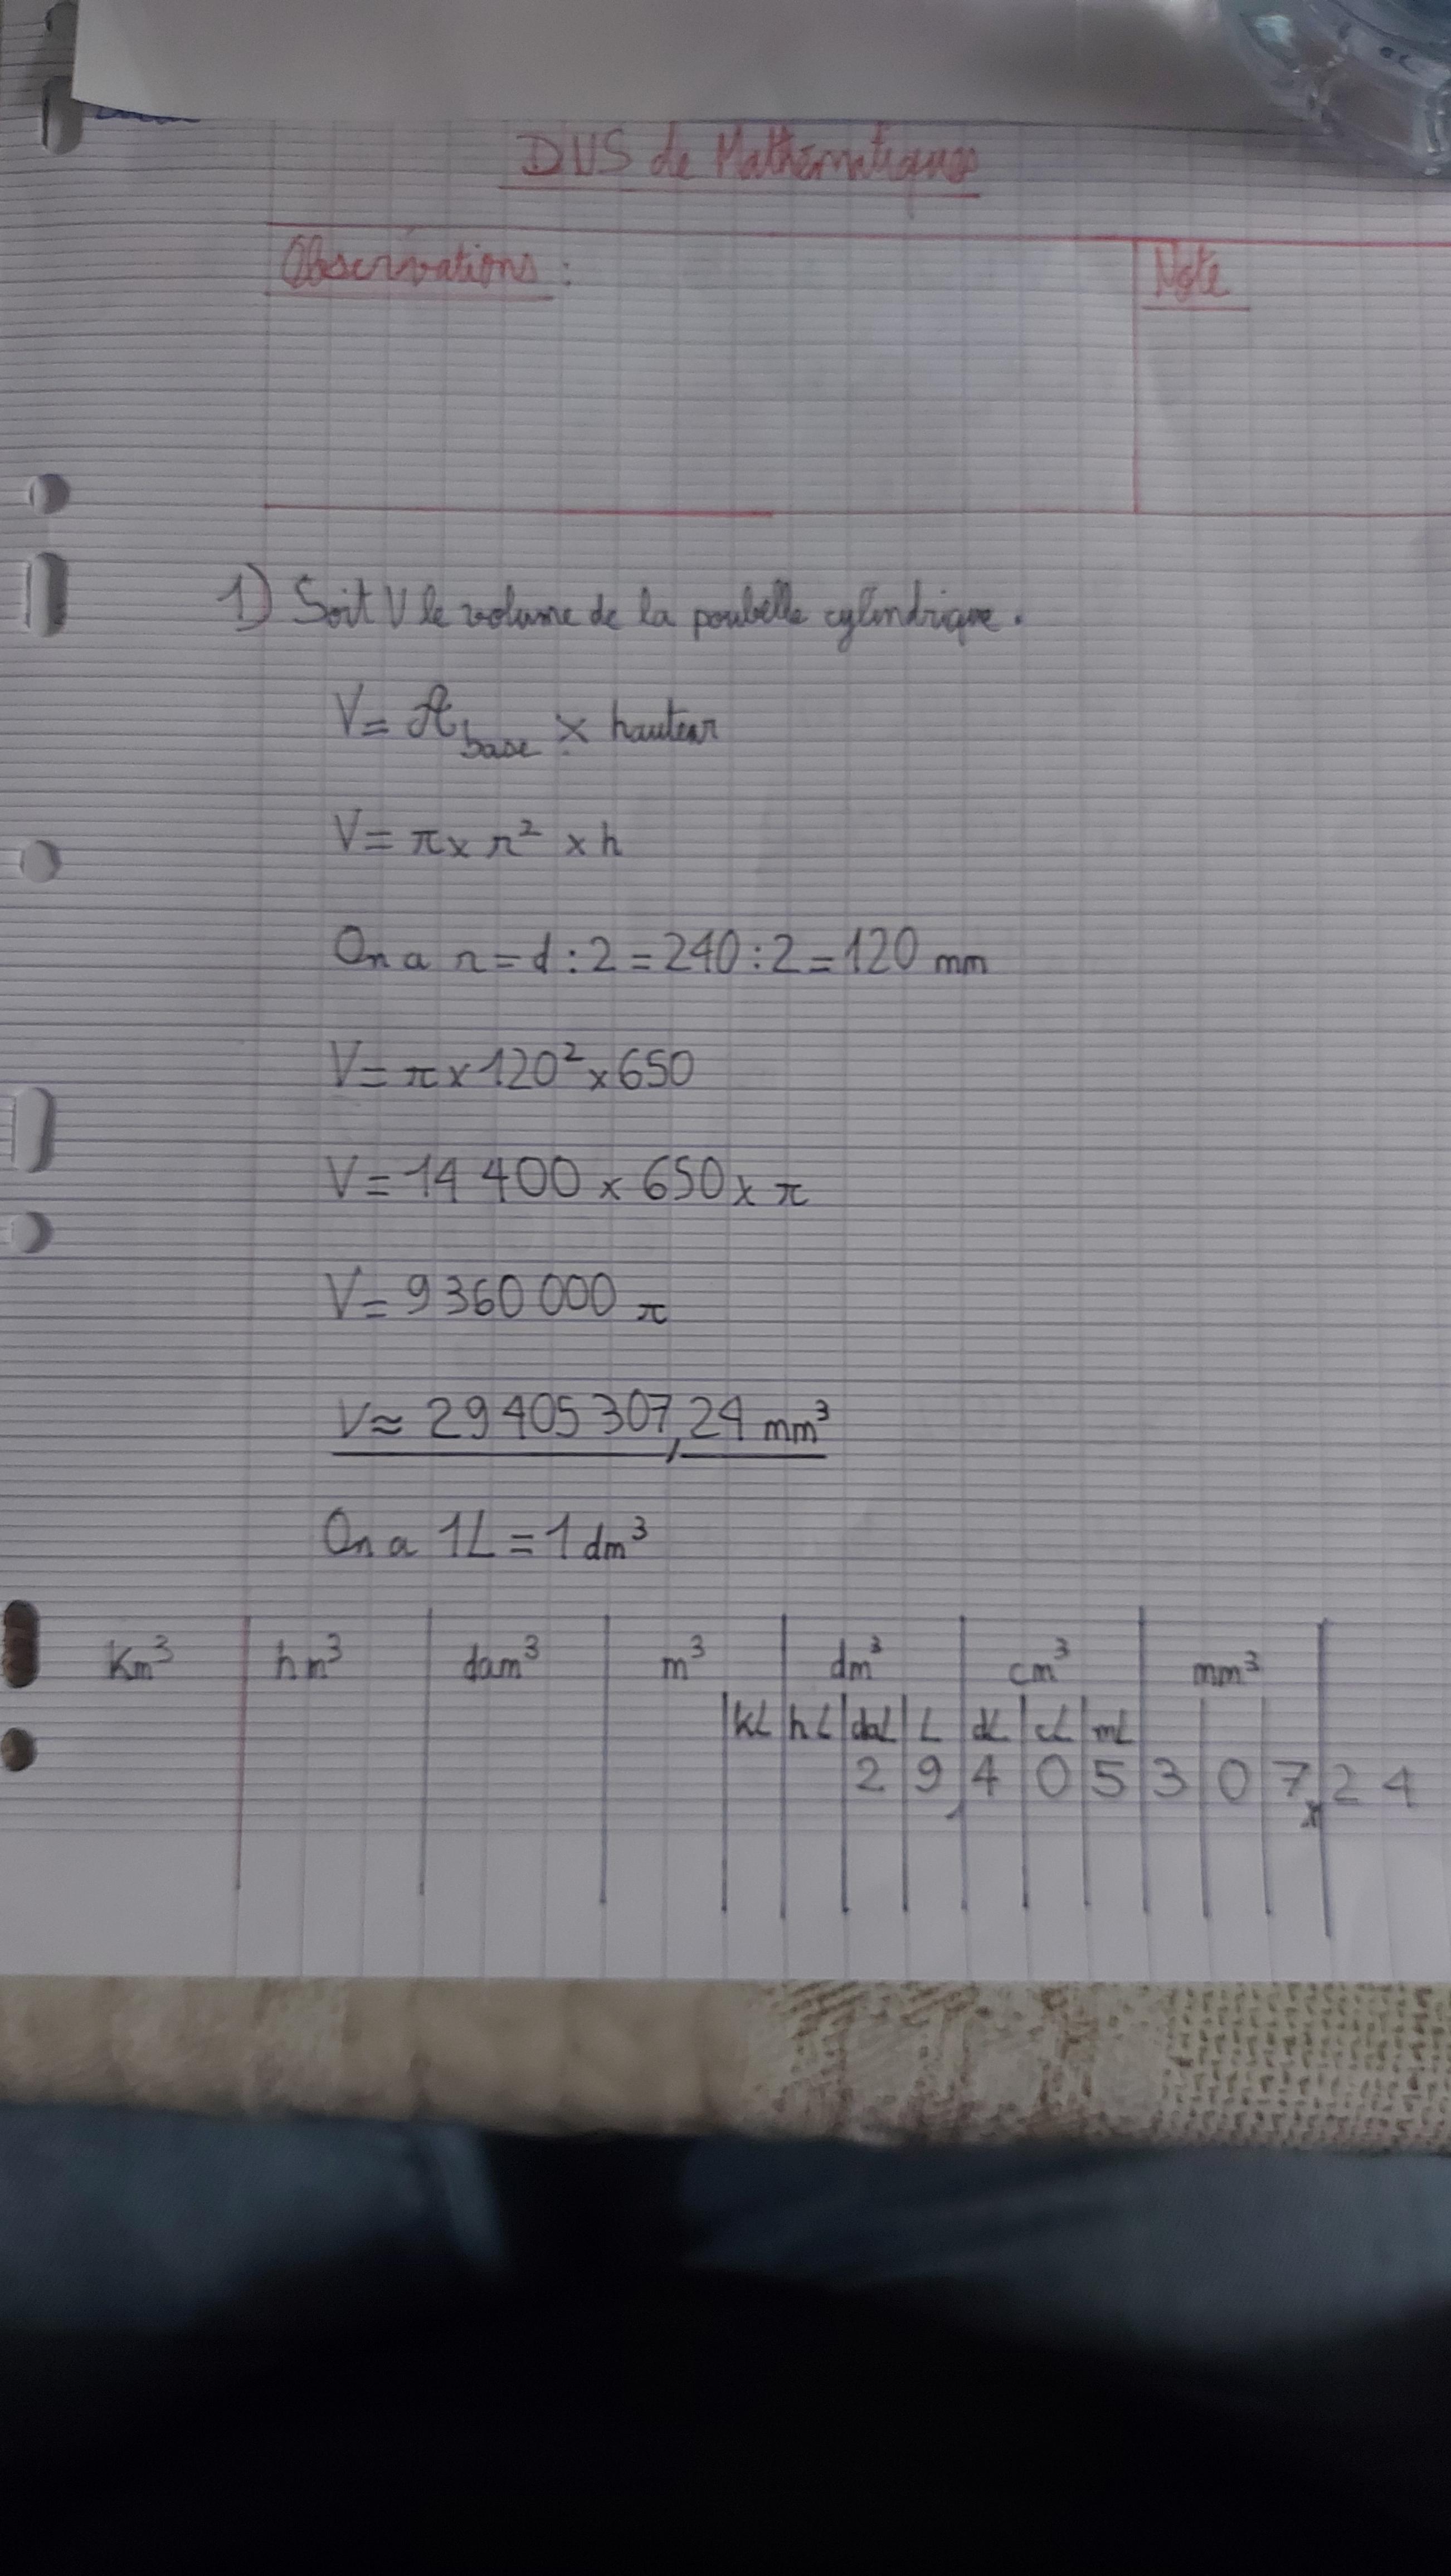 DVS de Mathématiques
Observations :
Note
1) Soit V le volume de la poubelle cylindrique.
V = A base × hauteur
V = π × r² × h
On a r = d : 2 = 240 : 2 = 120 mm
V = π × 120² × 650
V = 14 400 × 650 × π
V = 9 360 000 π
V ≈ 29 405 307,24 mm³
On a 1L = 1 dm³
Km³ hm³ dam³ m³ dm³ cm³ mm³
kL hL daL L dL cL mL
2 9, 4 0 5 3 0 7, 2 4